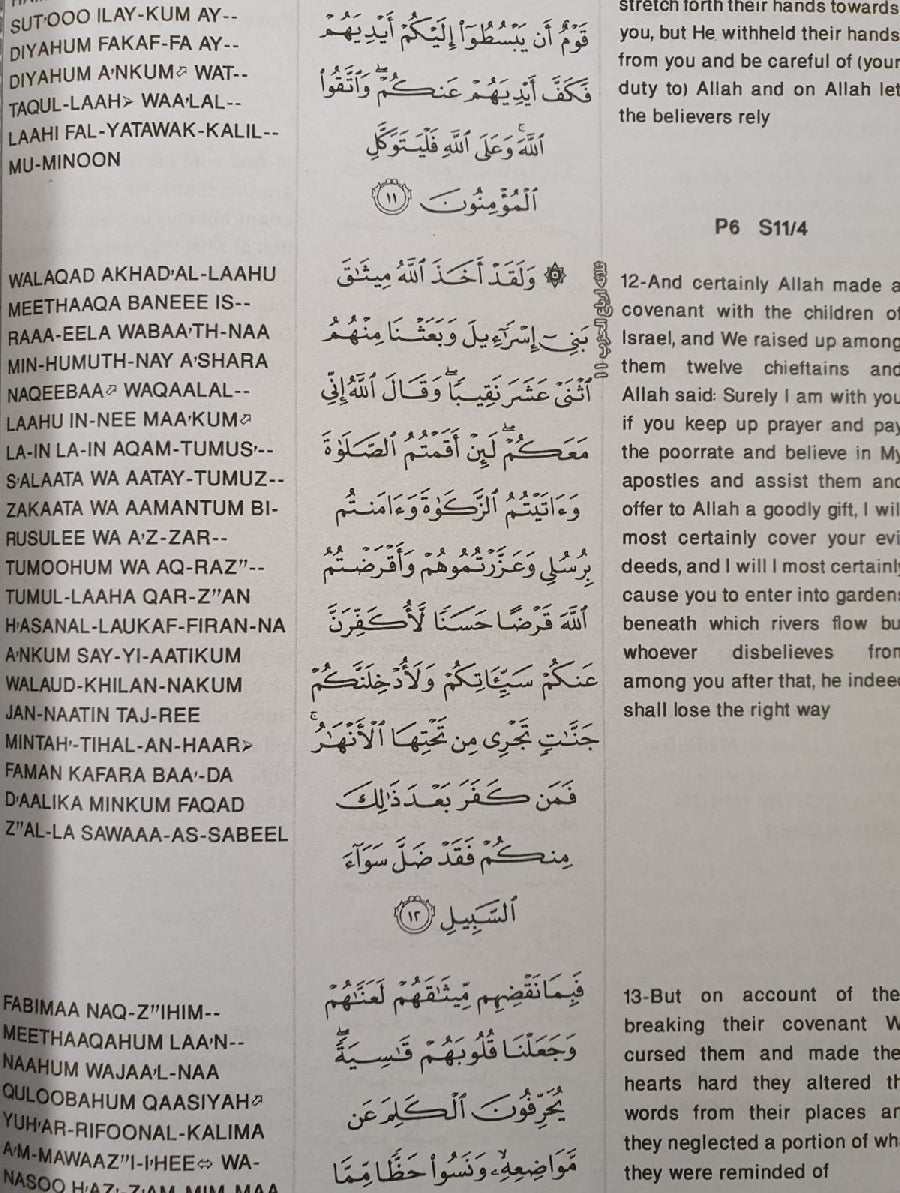 SUT'OOO ILAY-KUM AY--
DIYAHUM FAKAF-FA AY--
DIYAHUM A'NKUM⬀ WAT--
TAQUL-LAAH➢ WAA'LAL--
LAAHI FAL-YATAWAK-KALIL--
MU-MINOON
WALAQAD AKHAD'AL-LAAHU
MEETHAAQA BANEEE IS--
RAAA-EELA WABAA'TH-NAA
MIN-HUMUTH-NAY A'SHARA
NAQEEBAA⬀ WAQAALAL--
LAAHU IN-NEE MAA'KUM⬀
LA-IN LA-IN AQAM-TUMUS'--
S'ALAATA WA AATAY-TUMUZ--
ZAKAATA WA AAMANTUM BI-
RUSULEE WA A'Z-ZAR--
TUMOOHUM WA AQ-RAZ''--
TUMUL-LAAHA QAR-Z''AN
H'ASANAL-LAUKAF-FIRAN-NA
A'NKUM SAY-YI-AATIKUM
WALAUD-KHILAN-NAKUM
JAN-NAATIN TAJ-REE
MINTAH'-TIHAL-AN-HAAR➢
FAMAN KAFARA BAA'-DA
D'AALIKA MINKUM FAQAD
Z''AL-LA SAWAAA-AS-SABEEL
FABIMAA NAQ-Z''IHIM--
MEETHAAQAHUM LAA'N--
NAAHUM WAJAA'L-NAA
QULOOBAHUM QAASIYAH⬀
YUH'AR-RIFOONAL-KALIMA
A'M-MAWAAZ''I-I'HEE⬄ WA-
قَوْمٌ أَن يَبْسُطُوٓا۟ إِلَيْكُمْ أَيْدِيَهُمْ
فَكَفَّ أَيْدِيَهُمْ عَنكُمْ ۖ وَٱتَّقُوا۟
ٱللَّهَ ۚ وَعَلَى ٱللَّهِ فَلْيَتَوَكَّلِ
ٱلْمُؤْمِنُونَ ١١
۞ وَلَقَدْ أَخَذَ ٱللَّهُ مِيثَٰقَ
بَنِىٓ إِسْرَٰٓءِيلَ وَبَعَثْنَا مِنْهُمُ
ٱثْنَىْ عَشَرَ نَقِيبًا ۖ وَقَالَ ٱللَّهُ إِنِّى
مَعَكُمْ ۖ لَئِنْ أَقَمْتُمُ ٱلصَّلَوٰةَ
وَءَاتَيْتُمُ ٱلزَّكَوٰةَ وَءَامَنتُم
بِرُسُلِى وَعَزَّرْتُمُوهُمْ وَأَقْرَضْتُمُ
ٱللَّهَ قَرْضًا حَسَنًا لَّأُكَفِّرَنَّ
عَنكُمْ سَيِّـَٔاتِكُمْ وَلَأُدْخِلَنَّكُمْ
جَنَّٰتٍ تَجْرِى مِن تَحْتِهَا ٱلْأَنْهَٰرُ ۚ
فَمَن كَفَرَ بَعْدَ ذَٰلِكَ
مِنكُمْ فَقَدْ ضَلَّ سَوَآءَ
ٱلسَّبِيلِ ١٢
فَبِمَا نَقْضِهِم مِّيثَٰقَهُمْ لَعَنَّٰهُمْ
وَجَعَلْنَا قُلُوبَهُمْ قَٰسِيَةً ۖ
يُحَرِّفُونَ ٱلْكَلِمَ عَن
مَّوَاضِعِهِۦ ۙ وَنَسُوا۟ حَظًّا مِّمَّا
stretch forth their hands towards
you, but He withheld their hands
from you and be careful of (your
duty to) Allah and on Allah let
the believers rely
P6 S11/4
12-And certainly Allah made a
covenant with the children of
Israel, and We raised up among
them twelve chieftains and
Allah said: Surely I am with you
if you keep up prayer and pay
the poorrate and believe in My
apostles and assist them and
offer to Allah a goodly gift, I wil
most certainly cover your evi
deeds, and I will I most certainly
cause you to enter into gardens
beneath which rivers flow bu
whoever disbelieves from
among you after that, he indeed
shall lose the right way
13-But on account of the
breaking their covenant W
cursed them and made the
hearts hard they altered th
words from their places an
they neglected a portion of wh
they were reminded of